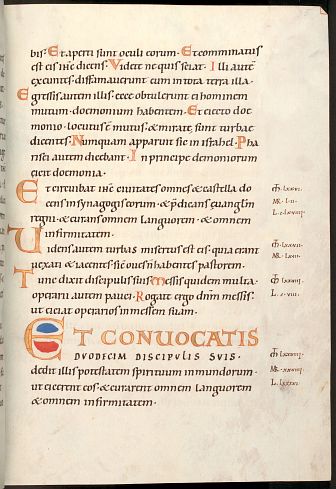 bis. Et aperti sunt oculi eorum. Et comminatus
est eis ihc dicens. Videte ne quis sciat. Illi aute
exeuntes. diffamauerunt eum in tota terra illa.
Egressis autem illis. ecce obtulerunt ei hominem
mutum. doemonium habentem. Et eiecto doe
monio. locutus e mutus. & mirate sunt turbae
dicentes. Numquam apparuit sic in israhel. Pha
risei autem dicebant. In principe demoniorum
eicit doemonia.
Et circuibat ihc ciuitates omnes & castella do
cens in synagogis eorum. & pdicans euangliu
regni. & curans omnem languorem. & omnem
infirmitatem.
Videns autem turbas misertus est eis. quia erant
uexati & iacentes. sic oues n habentes pastorem.
Tunc dixit discipulis suis. Messis quidem multa.
operarii autem pauci. Rogate ergo dnm messis.
ut eiciat operarios in messem suam.
ET CONUOCATIS
DUODECIM DISCIPULIS SUIS.
dedit illis potestatem spirituum inmundorum.
ut eicerent eos. & curarent omnem languorem
& omnem infirmitatem.